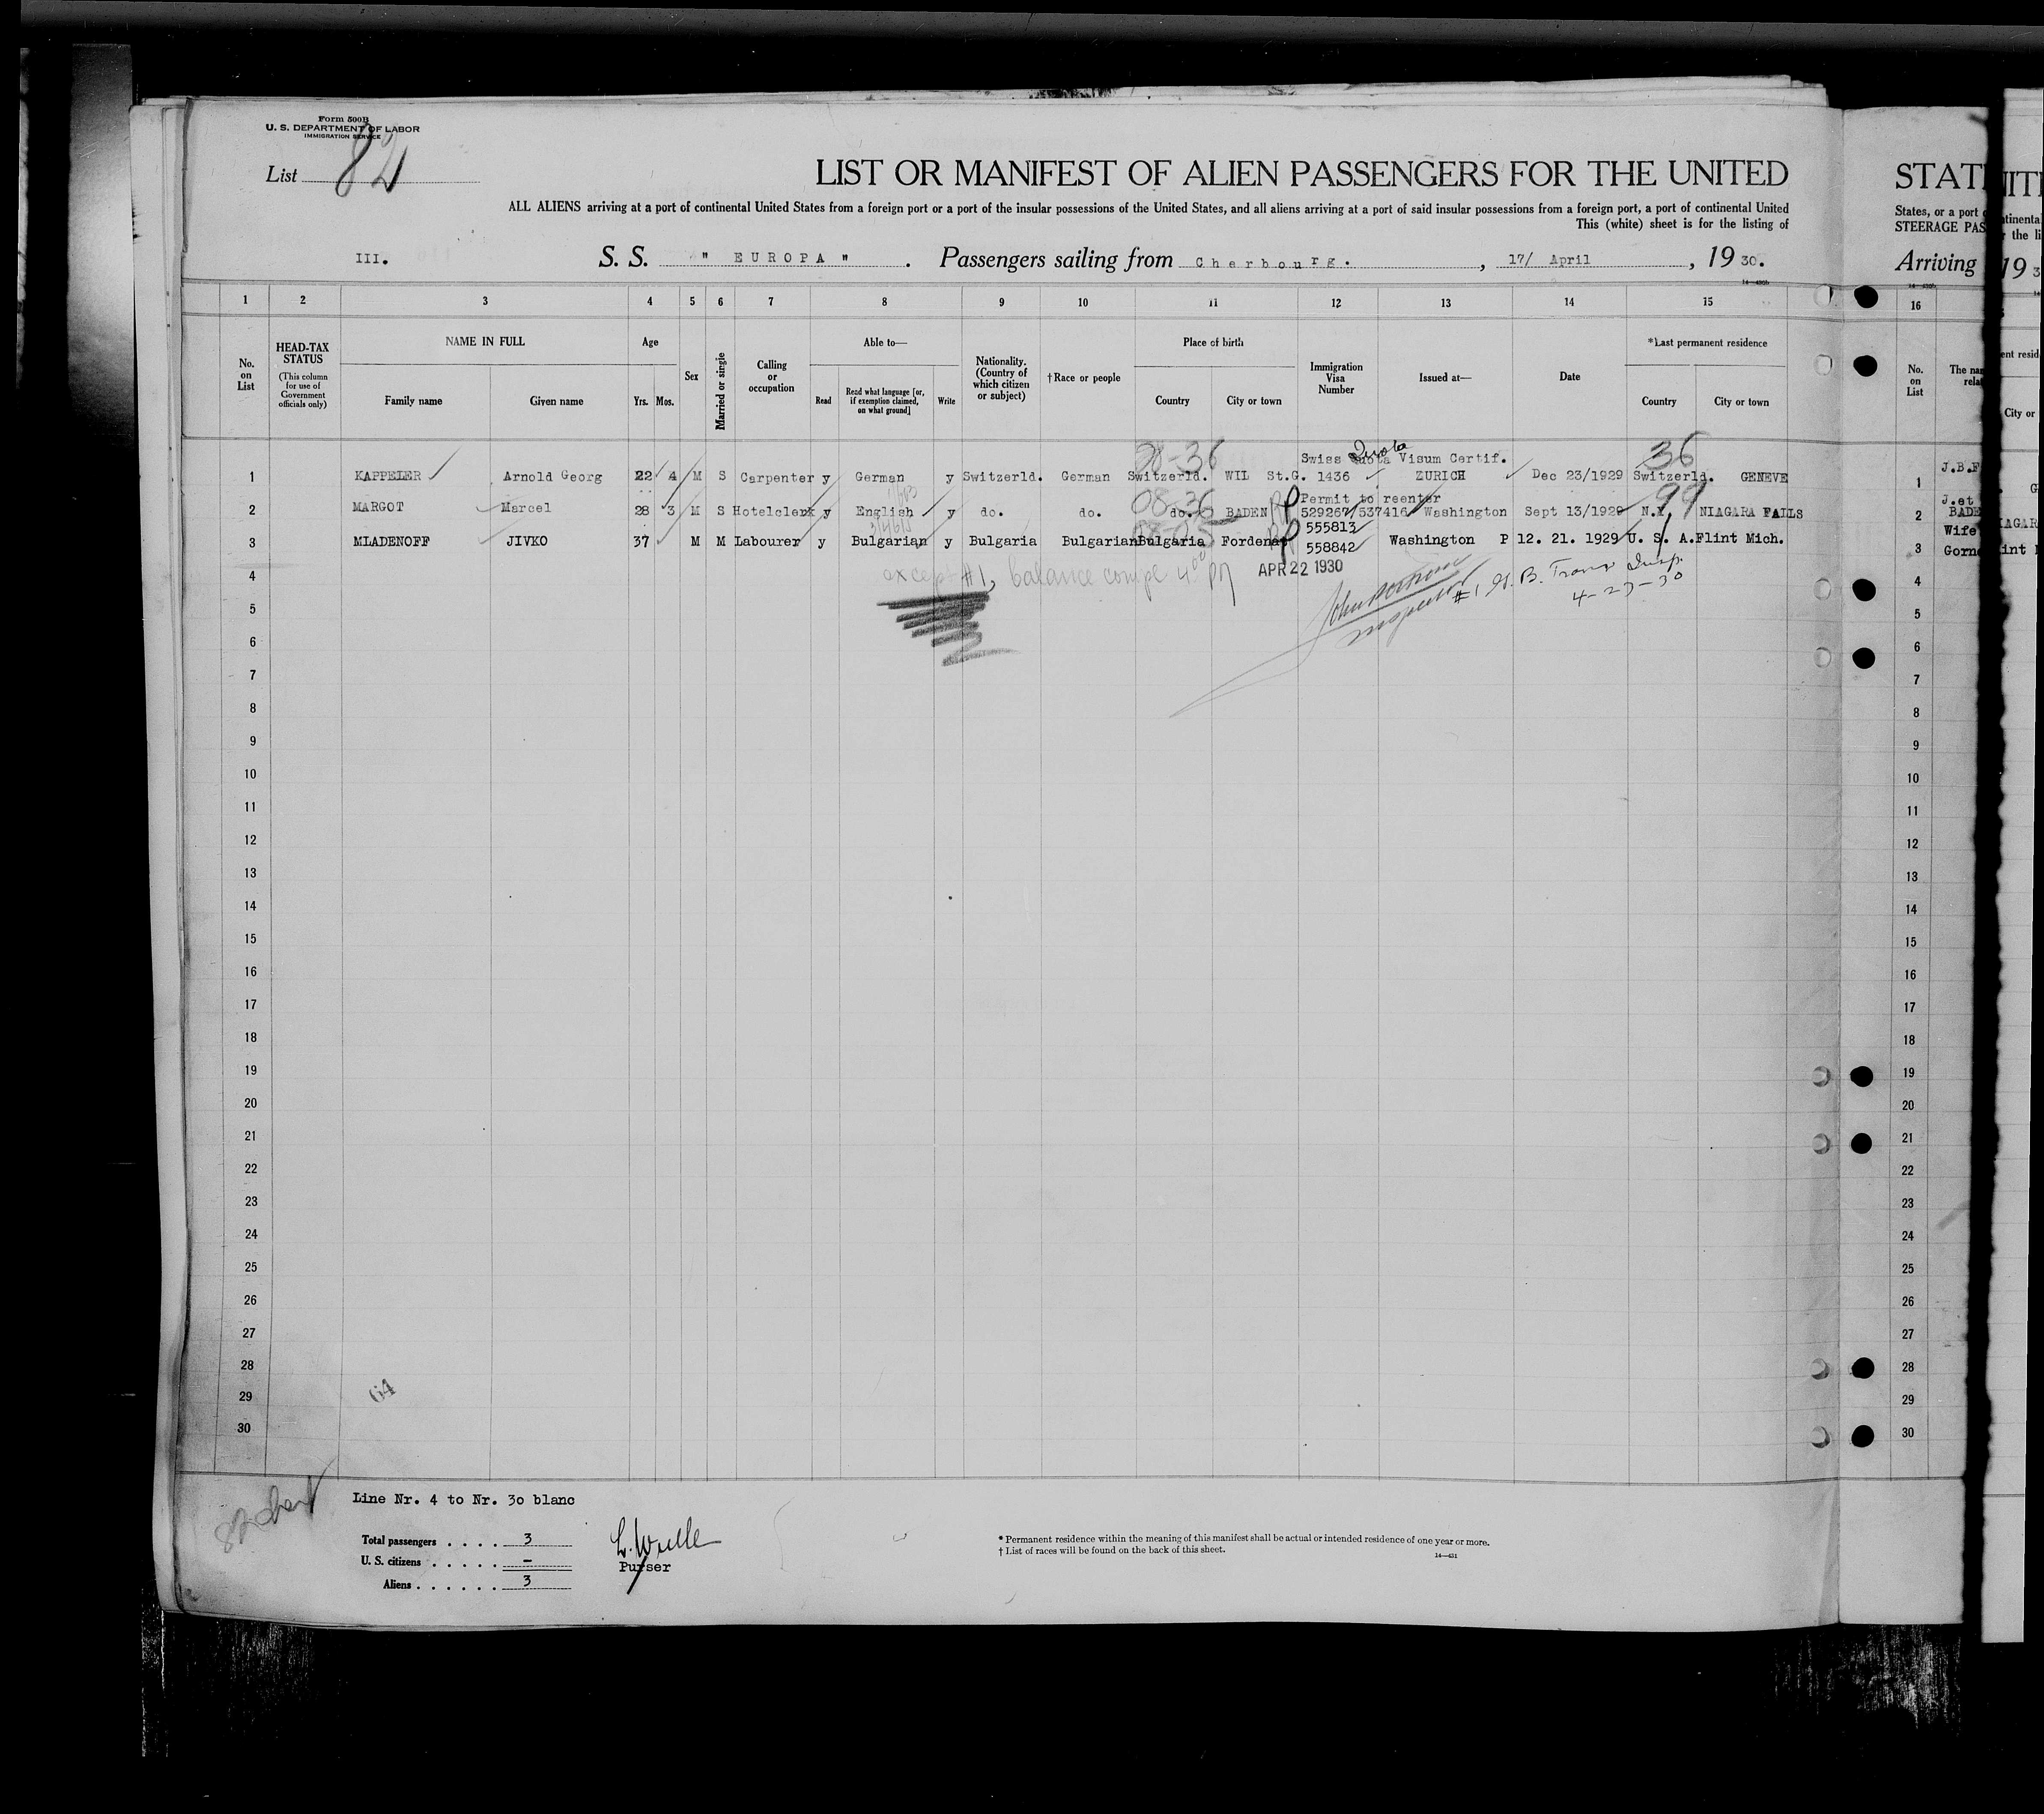 Form 500B
U. S. DEPARTMENT OF LABOR
IMMIGRATION SERVICE
List 82
LIST OR MANIFEST OF ALIEN PASSENGERS FOR THE UNITED
ALL ALIENS arriving at a port of continental United States from a foreign port or a port of the insular possessions of the United States, and all aliens arriving at a port of said insular possessions from a foreign port, a port of continental United
This (white) sheet is for the listing of
III. S. S. " EUROPA " . Passengers sailing from Cherbourg. , 17/ April , 19 30.
1 2 3 4 5 6 7 8 9 10 11 12 13 14 15
No. on List
HEAD-TAX STATUS
(This column for use of Government officials only)
NAME IN FULL
Family name Given name
Age
Yrs. Mos.
Sex
Married or single
Calling or occupation
Able to—
Read Read what language [or, if exemption claimed, on what ground] Write
Nationality. (Country of which citizen or subject)
†Race or people
Place of birth
Country City or town
Immigration Visa Number
Issued at—
Date
*Last permanent residence
Country City or town
08-36 Swiss Quota Visum Certif. Quota 36
1 KAPPELER Arnold Georg 22 4 M S Carpenter y German y Switzerld. German Switzerld. WIL St.G. 1436 ZURICH Dec 23/1929 Switzerld. GENEVE
08-36 Permit to reenter 99
2 MARGOT Marcel 28 3 M S Hotelclerk y English y do. do. do. BADEN 529267/537416 Washington Sept 13/1929 N.Y. NIAGARA FALLS
08-05 555813
3 MLADENOFF JIVKO 37 M M Labourer y Bulgarian y Bulgaria Bulgarian Bulgaria 558842 Washington P 12. 21. 1929 U. S. A. Flint Mich.
4 except #1, balance compl 4 00 PM APR 22 1930
#1 B. Insp.
4-23-30
5
6
7
8
9
10
11
12
13
14
15
16
17
18
19
20
21
22
23
24
25
26
27
28
29 64
30
Line Nr. 4 to Nr. 30 blanc
Total passengers . . . . 3
U. S. citizens . . . . . —
Aliens . . . . . . 3
Purser
* Permanent residence within the meaning of this manifest shall be actual or intended residence of one year or more.
† List of races will be found on the back of this sheet.
14—431
STAT
States, or a port
STEERAGE PAS
Arriving
16
No. on List
The nam
rela
1 J.B.F
J.et
2 BADE
Wife
3 Gorn
4
5
6
7
8
9
10
11
12
13
14
15
16
17
18
19
20
21
22
23
24
25
26
27
28
29
30
ITI
tinental
the li
19 3
ent resid
City or
G
IAGAR
int